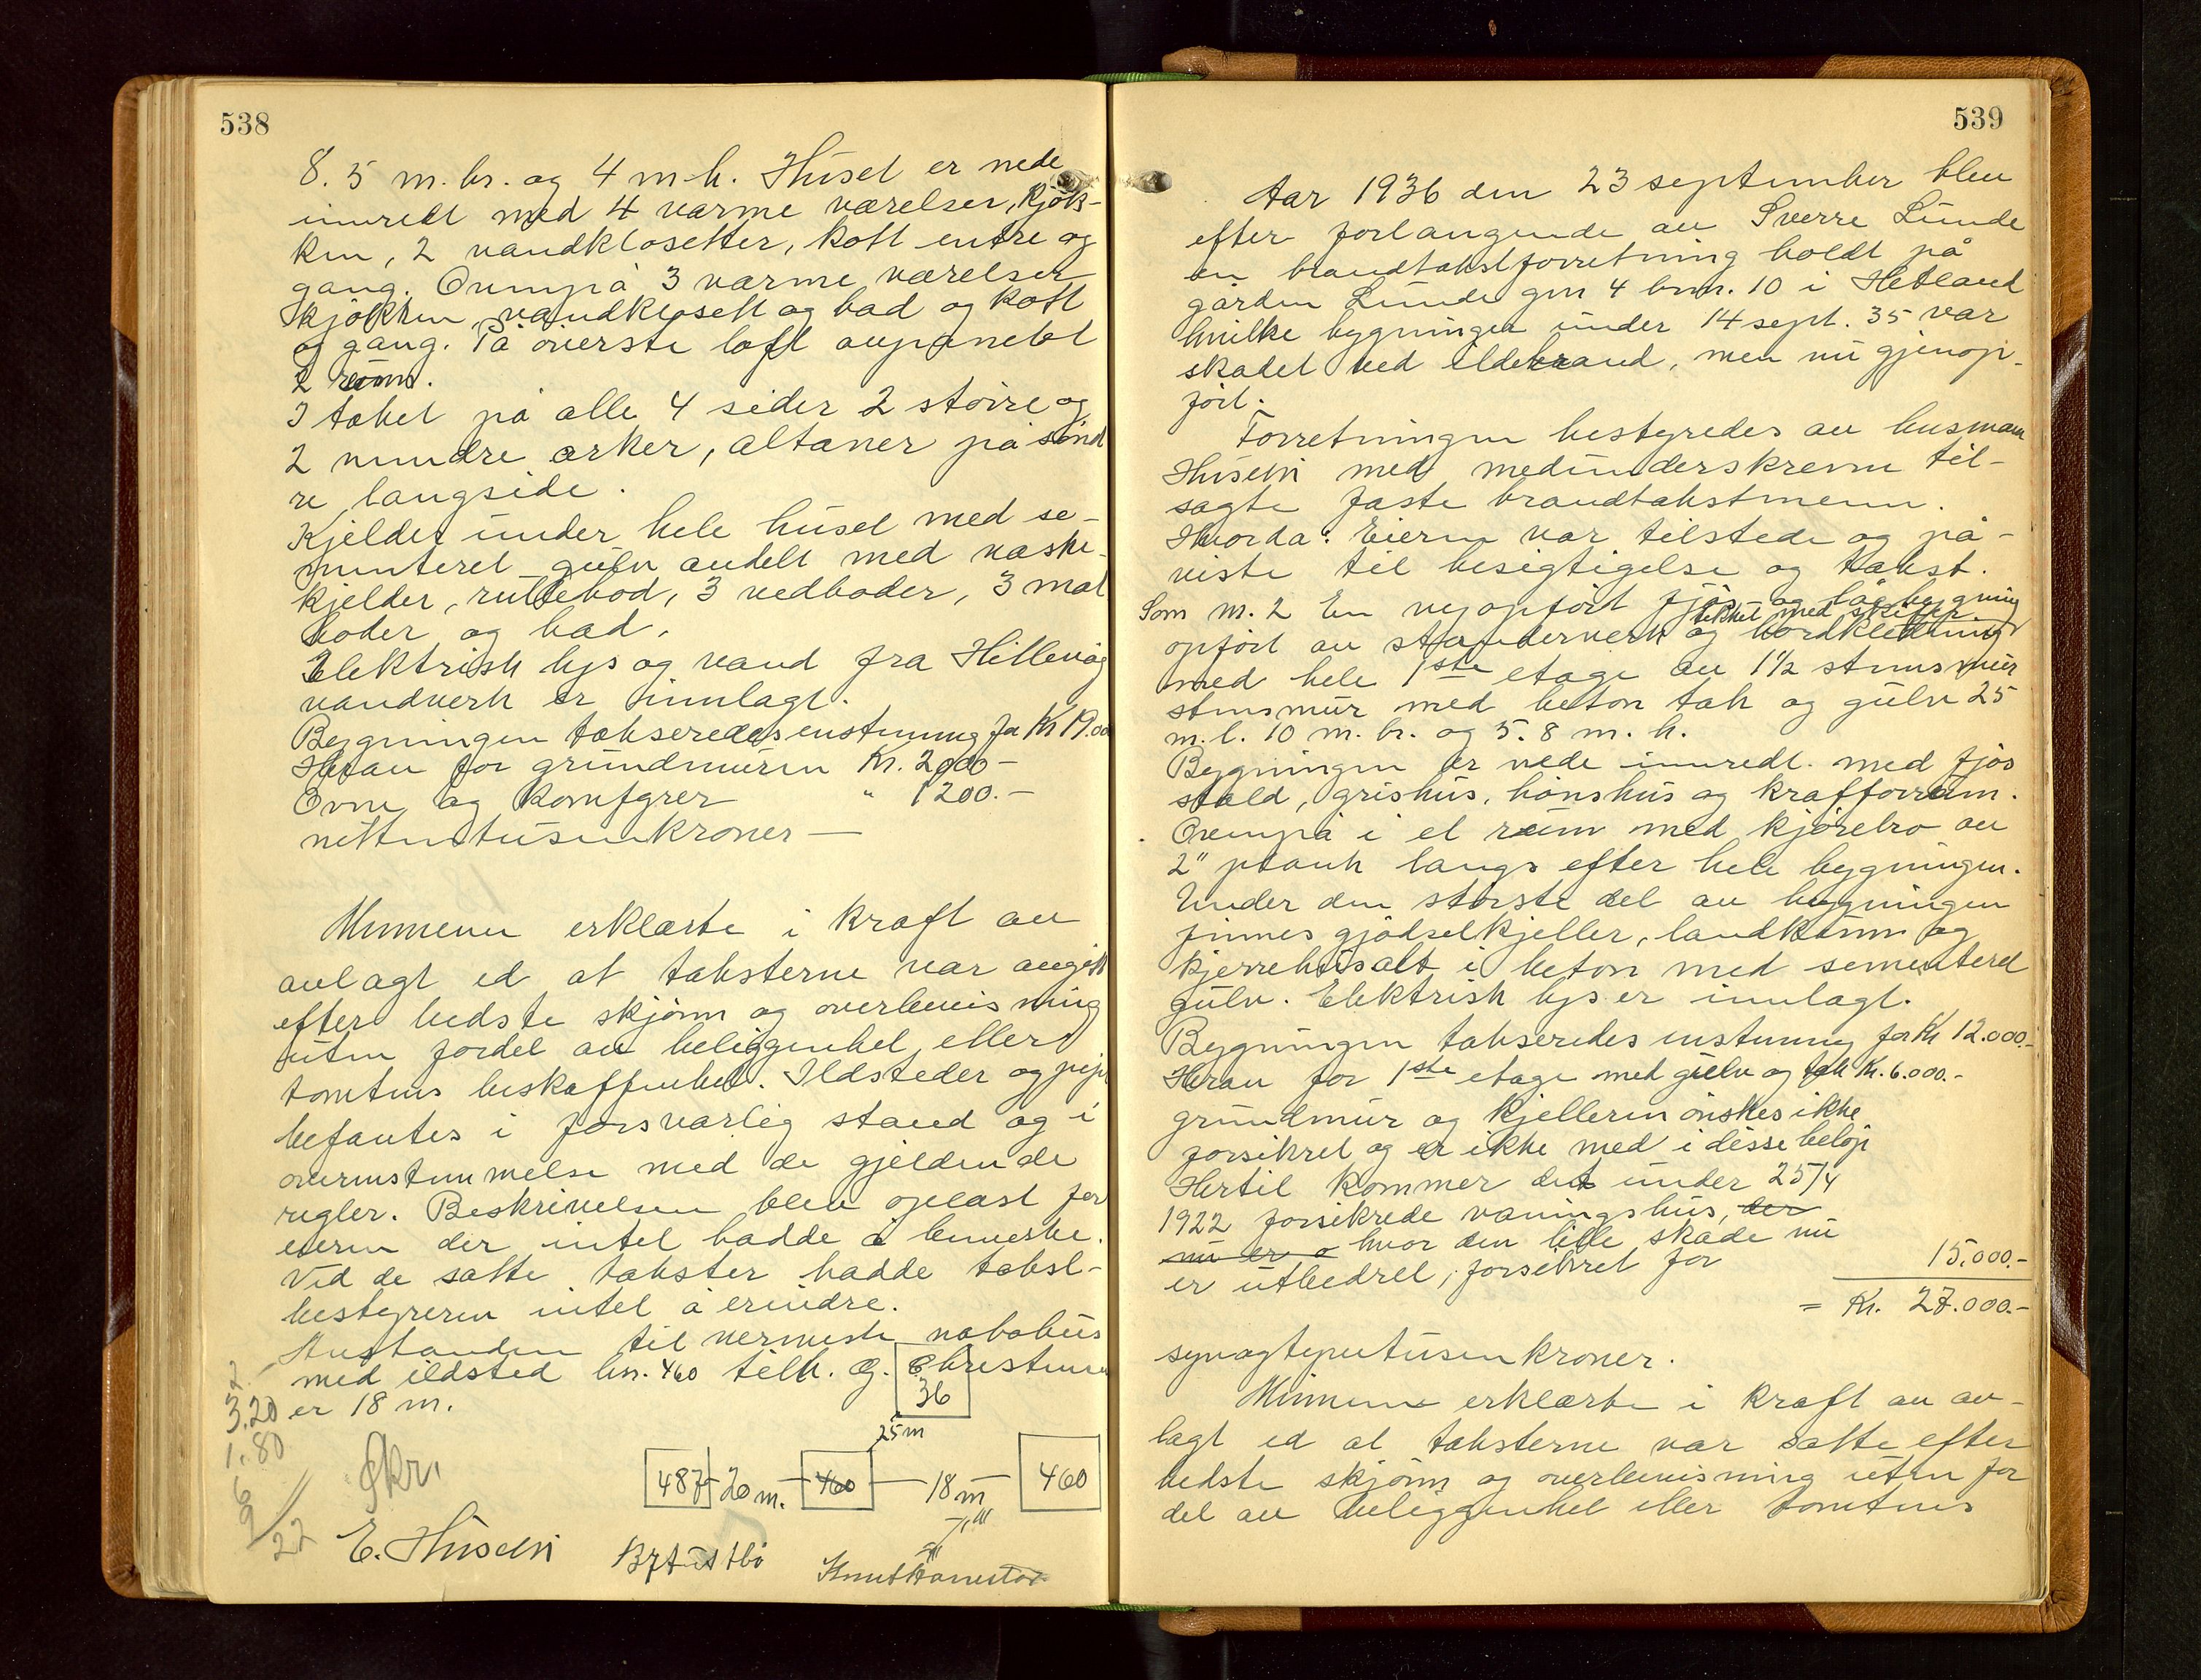 538
8.5 m. br. og 4 m. h. Huset er nede
innredt med 4 varme værelser, kjøk-
ken, 2 vandklosetter, kott entre og
gang. Ovenpå 3 varme værelser
kjøkken, vandklosett og bad og kott
og gang. På øverste loft avpanelet
2 rum.
I taket på alle 4 sider 2 større og
2 mindre arker, altaner på sønd
re langside.
Kjelder under hele huset med se-
menteret gulv avdelt med vaske-
kjelder, rullebod, 3 vedboder, 3 mat
boder og bad.
Elektrisk lys og vand fra Hillevåg
vandverk er innlagt.
Bygningen takseredes enstemmig for Kr 19.00
Herav for grundmuren Kr. 2000 -
Ovne og komfyrer " 1200.-
nittentusenkroner —
Mennene erklærte i kraft av
avlagt ed at taksterne var avgitt
efter bedste skjønn og overbevisning
uten fordel av beliggenhet eller
tomtens beskaffenhet. Ildsteder og piper
befantes i forsvarlig stand og i
overenstemmelse med de gjeldende
regler. Beskrivelsen blev oplæst for
eieren der intet hadde å bemerke.
Ved de satte takster hadde takst-
bestyreren intet å erindre.
Avstanden til nermeste nabohus
med ildsted bn. 460 tilh. G. Christensen
er 18 m.
36
25 m
487 - 20 m. - 460 — 18 m — 460
2
3.20
1.80
6
9
22
Skr.
E. Husebø
B Tustbø
539
Aar 1936 den 23 september blev
efter forlangende av Sverre Lunde
en brandtakstforretning holdt på
gården Lunde gnr 4 bnr. 10 i Hetland
hvilke bygninger under 14 sept. 35 var
skadet ved ildebrand, men nu gjenop-
ført.
Forretningen bestyredes av lensmann
Husebø med medunderskrevne til-
sagte faste brandtakstmenn.
Hvorda: Eieren var tilstede og på-
viste til besigtigelse og takst.
Som nr. 2 En nyopført fjøs og løebygning
tekket med skifer
opført av stenderverk og bordkledning
med hele 1ste etage av 1½ stensmur
stensmur med beton tak og gulv 25
m. l. 10 m. br. og 5.8 m. h.
Bygningen er nede innredt med fjøs
stald, grishus, hønshus og kraftforrum.
Ovenpå i et rum med kjørebro av
2" plank langs efter hele bygningen.
Under den største del av bygningen
finnes gjødselkjeller, landkum og
kjerrehus alt i beton med sementeret
gulv. Elektrisk lys er innlagt.
Bygningen takseredes enstemmig for Kr 12.000.-
Herav for 1ste etage med gulv og tak Kr. 6.000.-
grundmur og kjelleren ønskes ikke
forsikret og er ikke med i disse beløp
Hertil kommer det under 25/4
1922 forsikrede våningshus, der
nu er o hvor den lille skade nu
er utbedret, forsikret for 15.000.-
= Kr. 27.000.-
syvogtyvetusenkroner.
Mennene erklærte i kraft av av-
lagt ed at taksterne var satte efter
bedste skjønn og overbevisning uten for
del av beliggenhet eller tomtens